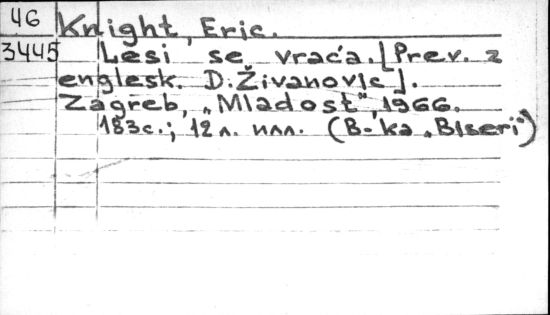 46
3445
Knight, Eric.
Lesi se vraća. [Prev. z
englesk. D. Živanović].
Zagreb, „Mladost", 1966.
183с.; 12 л. илл. (B-ka „Biseri")